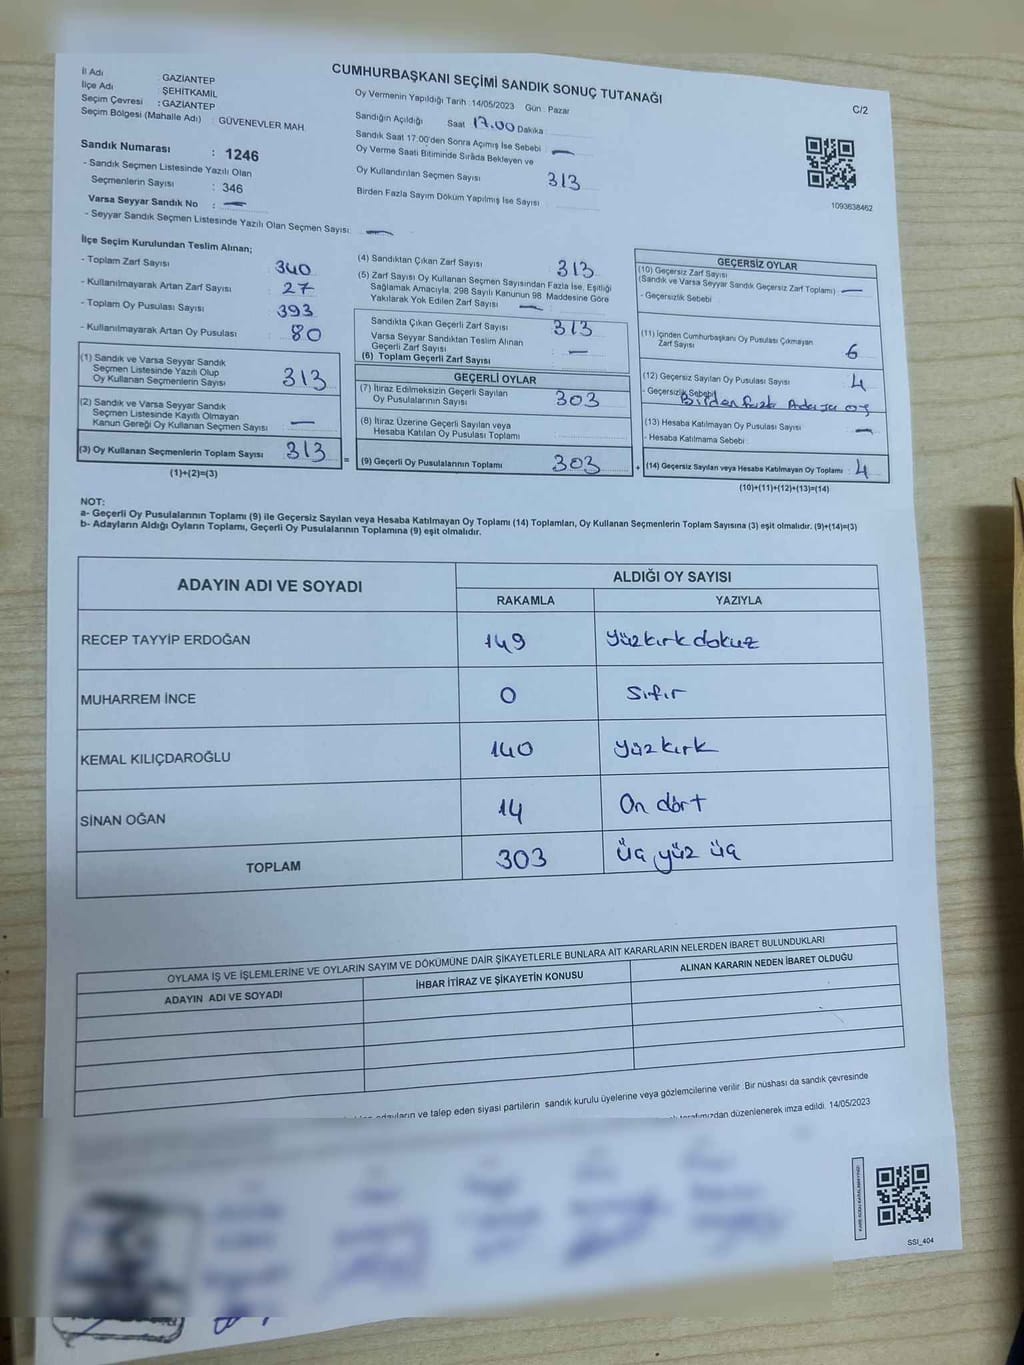 CUMHURBAŞKANI SEÇİMİ SANDIK SONUÇ TUTANAĞI
C/2
İl Adı : GAZİANTEP
İlçe Adı : ŞEHİTKAMİL
Seçim Çevresi : GAZİANTEP
Seçim Bölgesi (Mahalle Adı) : GÜVENEVLER MAH.
Sandık Numarası : 1246
- Sandık Seçmen Listesinde Yazılı Olan
Seçmenlerin Sayısı : 346
Varsa Seyyar Sandık No : —
- Seyyar Sandık Seçmen Listesinde Yazılı Olan Seçmen Sayısı: —
Oy Vermenin Yapıldığı Tarih : 14/05/2023 Gün : Pazar
Sandığın Açıldığı Saat 17.00 Dakika :
Sandık Saat 17:00'den Sonra Açımış İse Sebebi —
Oy Verme Saati Bitiminde Sırada Bekleyen ve
Oy Kullandırılan Seçmen Sayısı 313
Birden Fazla Sayım Döküm Yapılmış İse Sayısı :
1093638462
İlçe Seçim Kurulundan Teslim Alınan;
- Toplam Zarf Sayısı : 340
- Kullanılmayarak Artan Zarf Sayısı : 27
- Toplam Oy Pusulası Sayısı : 393
- Kullanılmayarak Artan Oy Pusulası : 80
(1) Sandık ve Varsa Seyyar Sandık
Seçmen Listesinde Yazılı Olup
Oy Kullanan Seçmenlerin Sayısı : 313
(2) Sandık ve Varsa Seyyar Sandık
Seçmen Listesinde Kayıtlı Olmayan
Kanun Gereği Oy Kullanan Seçmen Sayısı : —
(3) Oy Kullanan Seçmenlerin Toplam Sayısı : 313
(1)+(2)=(3)
(4) Sandıktan Çıkan Zarf Sayısı : 313
(5) Zarf Sayısı Oy Kullanan Seçmen Sayısından Fazla İse, Eşitliği
Sağlamak Amacıyla; 298 Sayılı Kanunun 98. Maddesine Göre
Yakılarak Yok Edilen Zarf Sayısı : —
Sandıkta Çıkan Geçerli Zarf Sayısı : 313
Varsa Seyyar Sandıktan Teslim Alınan
Geçerli Zarf Sayısı : —
(6) Toplam Geçerli Zarf Sayısı :
GEÇERLİ OYLAR
(7) İtiraz Edilmeksizin Geçerli Sayılan
Oy Pusulalarının Sayısı : 303
(8) İtiraz Üzerine Geçerli Sayılan veya
Hesaba Katılan Oy Pusulası Toplamı :
= (9) Geçerli Oy Pusulalarının Toplamı : 303
GEÇERSİZ OYLAR
(10) Geçersiz Zarf Sayısı
(Sandık ve Varsa Seyyar Sandık Geçersiz Zarf Toplamı) : —
- Geçersizlik Sebebi
(11) İçinden Cumhurbaşkanı Oy Pusulası Çıkmayan
Zarf Sayısı : 6
(12) Geçersiz Sayılan Oy Pusulası Sayısı : 4
- Geçersizlik Sebebi Birden fazla Adaya oy
(13) Hesaba Katılmayan Oy Pusulası Sayısı : —
- Hesaba Katılmama Sebebi :
+ (14) Geçersiz Sayılan veya Hesaba Katılmayan Oy Toplamı : 4
(10)+(11)+(12)+(13)=(14)
NOT:
a- Geçerli Oy Pusulalarının Toplamı (9) ile Geçersiz Sayılan veya Hesaba Katılmayan Oy Toplamı (14) Toplamları, Oy Kullanan Seçmenlerin Toplam Sayısına (3) eşit olmalıdır. (9)+(14)=(3)
b- Adayların Aldığı Oyların Toplamı, Geçerli Oy Pusulalarının Toplamına (9) eşit olmalıdır.
ADAYIN ADI VE SOYADI
ALDIĞI OY SAYISI
RAKAMLA YAZIYLA
RECEP TAYYİP ERDOĞAN 149 yüzkırk dokuz
MUHARREM İNCE 0 Sıfır
KEMAL KILIÇDAROĞLU 140 yüz kırk
SİNAN OĞAN 14 On dört
TOPLAM 303 üç yüz üç
OYLAMA İŞ VE İŞLEMLERİNE VE OYLARIN SAYIM VE DÖKÜMÜNE DAİR ŞİKAYETLERLE BUNLARA AİT KARARLARIN NELERDEN İBARET BULUNDUKLARI
ADAYIN ADI VE SOYADI İHBAR İTİRAZ VE ŞİKAYETİN KONUSU ALINAN KARARIN NEDEN İBARET OLDUĞU
adayların ve talep eden siyasi partilerin sandık kurulu üyelerine veya gözlemcilerine verilir. Bir nüshası da sandık çevresinde
tarafımızdan düzenlenerek imza edildi. 14/05/2023
SSI_404